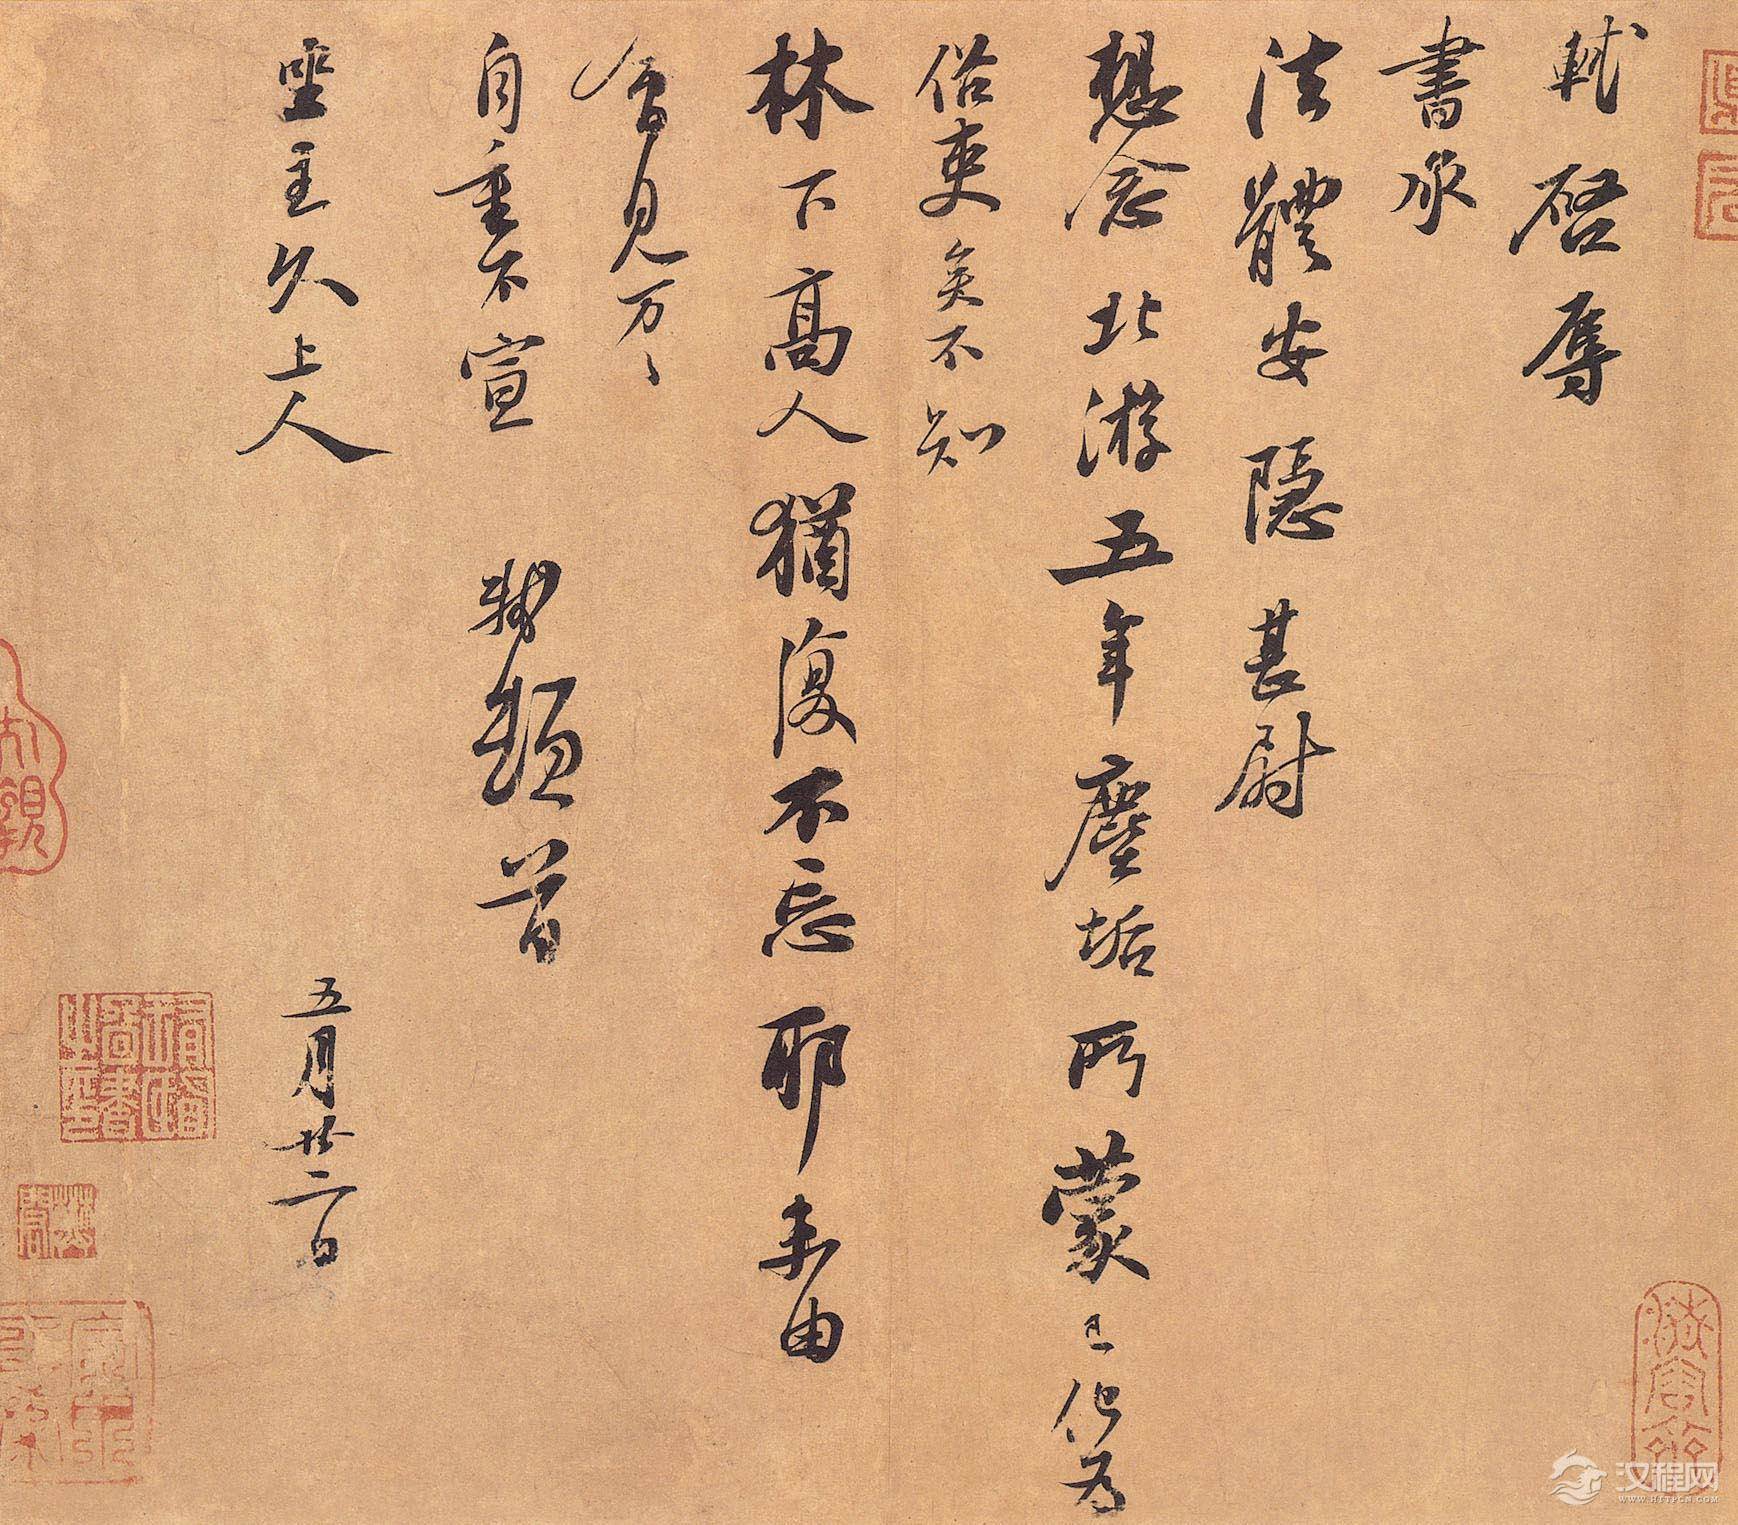 軾啓辱
書承
法體安隱甚尉
想念北游五年塵垢所蒙已化為
俗吏矣不知
林下高人猶復不忘耶未由
會見万〻
自重不宣 軾頓首
坐主久上人 五月廿二日
汉程网
WWW.HTTPCN.COM